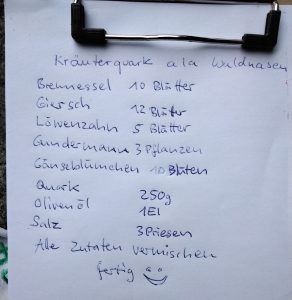 Kräuterquark a la Waldnasen
Brennessel 10 Blätter
Giersch 12 Blätter
Löwenzahn 5 Blätter
Gundermann 3 Pflanzen
Gänseblümchen 10 Blüten
Quark 250g
Olivenöl 1El
Salz 3 Priesen
Alle Zutaten vermischen
fertig